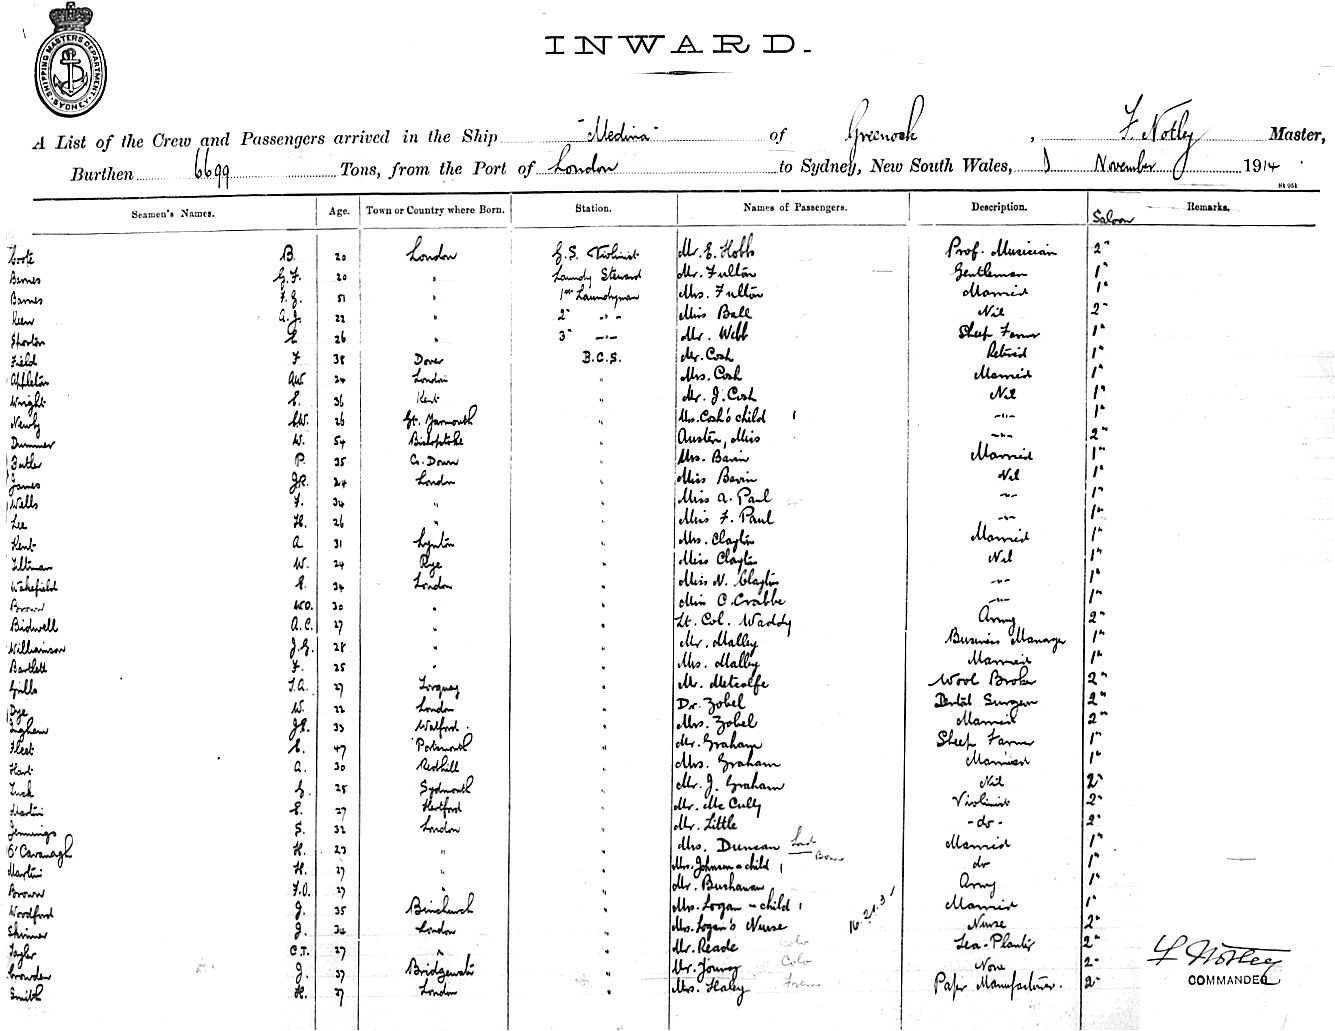 SHIPPING MASTERS DEPARTMENT SYDNEY
INWARD.
A List of the Crew and Passengers arrived in the Ship "Medina" of Greenock, F Notley Master,
Burthen 6699 Tons, from the Port of London to Sydney, New South Wales, 1 November 1914
St 951
Seamen's Names. Age. Town or Country where Born. Station. Names of Passengers. Description. Remarks.
Saloon
Coote B. 20 London G.S. Violinist Mr. E. Hobbs Prof. Musician 2"
Barnes G.F. 20 " Laundry Steward Mr. Fulton Gentleman 1"
Barnes F.G. 51 " 1st Laundryman Mrs. Fulton Married 1"
Keen A.J. 22 " 2" -"- Miss Ball Nil 2"
Shorter 26 " 3" -"- Mr. Webb Sheep Farmer 1"
Field F 38 Dover B.C.S. Mr. Cosh Retired 1"
Appleton AW 24 London " Mrs. Cosh Married 1"
Wright E. 36 Kent " Mr. J. Cosh Nil 1"
Newby 26 Gt. Yarmouth " Mrs. Cosh's child 1 -"- 1"
Dummer W. 54 Bishopstoke " Austen, Miss -"- 2"
Butler P. 35 Co. Down " Mrs. Bavin Married 1"
James J.R. 24 London " Miss Bavin Nil 1"
Wells F. 34 " " Miss A. Paul -"- 1"
Lee H. 26 " " Miss F. Paul -"- 1"
Kent A 31 Lynton " Mrs. Clayton Married 1"
Tiltman W. 24 Rye " Miss Clayton Nil 1"
Wakefield E. 34 London " Miss N. Clayton -"- 1"
Brown W.O. 30 " " Miss C. Crabbe -"- 1"
Bidwell A.C. 27 " " Lt. Col. Waddy Army 2"
Williamson J.G. 28 " " Mr. Malley Business Manager 1"
Bartlett F. 25 " " Mrs. Malley Married 1"
Gills T.A. 27 Torquay " M. Metcalfe Wool Broker 2"
Dye W. 22 London " Dr. Zobel Dental Surgeon 2"
Ingham J.R. 33 Watford " Mrs. Zobel Married 2"
Fleet E. 47 Portsmouth " Mr. Graham Sheep Farmer 1"
Hart A. 30 Redhill " Mrs. Graham Married 1"
Tuck G. 25 Sydmouth " Mr. J. Graham Nil 2"
Martin E. 27 Hertford " Mr. McCully Violinist 2"
Jennings S. 32 London " Mr. Little -do- 2"
O'Cavanagh H. 23 " " Mrs. Duncan Married 1"
Martin H. 27 " " Mrs. Johnson & child 1 do 1"
Brown F.O. 27 " " Mr. Buchanan Army 1"
Woodford J. 35 Binchurch " Mrs. Logan - child 1 Married 1"
Skinner J. 34 London " Mrs. Logan's Nurse 16.21.3. Nurse 2"
Tayler C.T. 27 " " Mr. Reade Tea-Planter 2"
Crowden J. 37 Bridgwater " Mr. Young None 2"
Smith H. 27 London " Mrs. Haley Paper Manufacturer. 2"
F Notley
COMMANDER